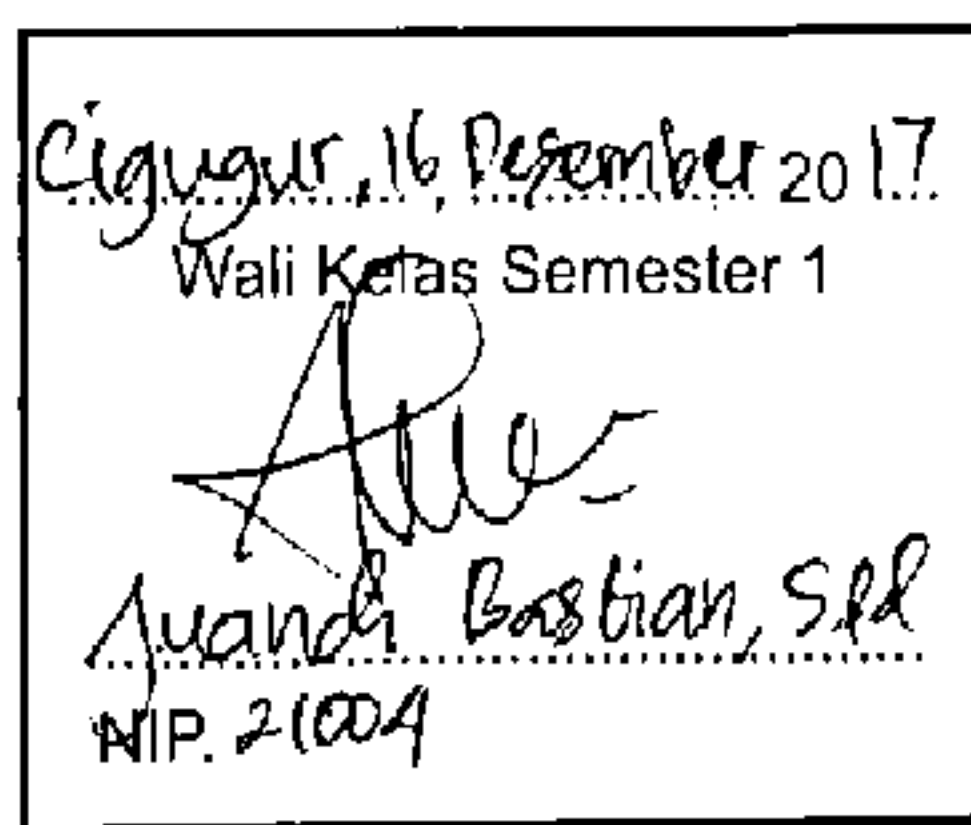 Cigugur, 16, Desember 2017
Wali Kelas Semester 1
Juandi Bastian, S.Pd
NIP. 21004